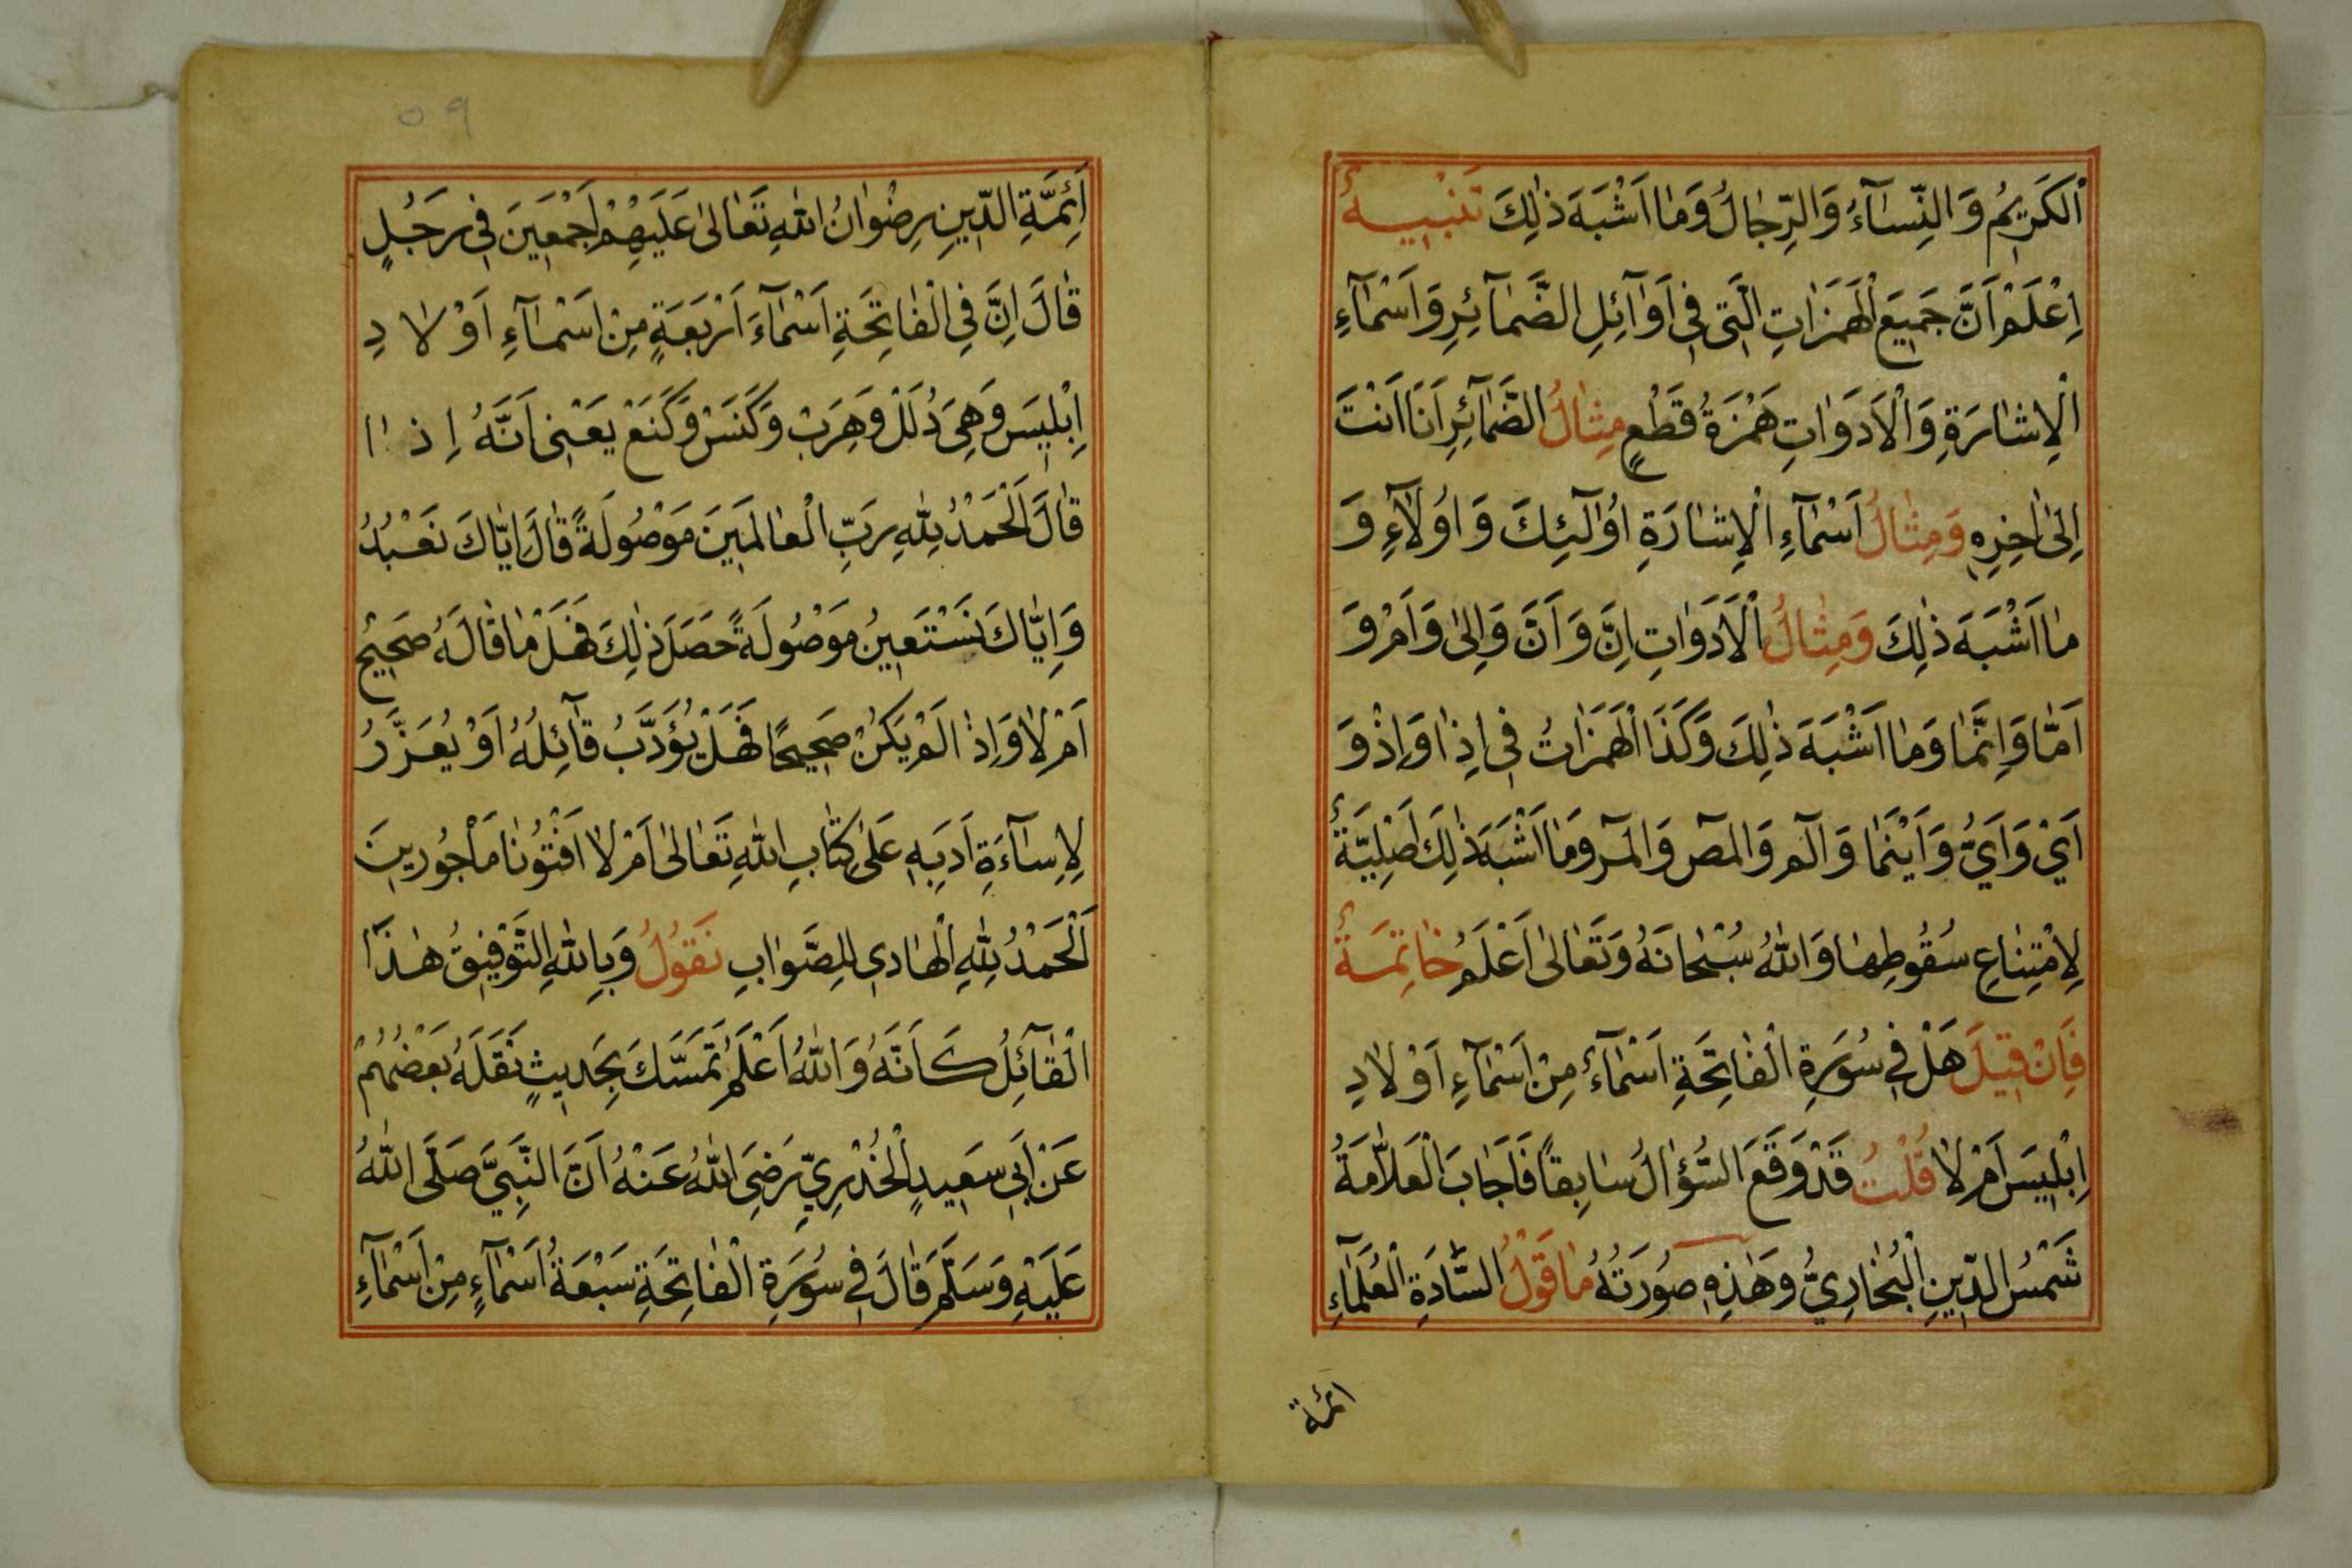 اَلْكَرِيمُ وَالنِّسَآءُ وَالرِّجَالُ وَمَا اَشْبَهَ ذٰلِكَ تَنْبِيهٌ
اِعْلَمْ اَنَّ جَمِيعَ الْهَمَزَاتِ الَّتِى فِى اَوَآئِلِ الضَّمَآئِرِ وَاَسْمَآءِ
الْاِشَارَةِ وَالْاَدَوَاتِ هَمْزَةُ قَطْعٍ مِثَالُ الضَّمَآئِرِ اَنَا اَنْتَ
اِلىٰ اٰخِرِهِ وَمِثَالُ اَسْمَآءِ الْاِشَارَةِ اُولٰٓئِكَ وَاُولَآءِ وَ
مَا اَشْبَهَ ذٰلِكَ وَمِثَالُ الْاَدَوَاتِ اِنَّ وَاَنَّ وَاِلىٰ وَاَمْ وَ
اَمَّا وَاِنَّمَا وَمَا اَشْبَهَ ذٰلِكَ وَكَذَا الْهَمَزَاتُ فِى اِذَا وَاِذْ وَ
اَيْ وَاَيُّ وَاَيْنَمَا وَالٓمٓ وَالٓمٓصٓ وَالٓمٓرٰ وَمَا اَشْبَهَ ذٰلِكَ اَصْلِيَّةٌ
لِامْتِنَاعِ سُقُوطِهَا وَاللّٰهُ سُبْحَانَهُ وَتَعَالىٰ اَعْلَمُ خَاتِمَةٌ
فَاِنْ قِيلَ هَلْ فِى سُورَةِ الْفَاتِحَةِ اَسْمَآءٌ مِنْ اَسْمَآءِ اَوْلَادِ
اِبْلِيسَ اَمْ لَا قُلْتُ قَدْ وَقَعَ السُّؤَالُ سَابِقًا فَاَجَابَ الْعَلَّامَةُ
شَمْسُ الدِّينِ الْبُخَارِيُّ وَهٰذِهِ صُورَتُهُ مَا قَوْلُ السَّادَةِ الْعُلَمَآءِ
ائمة
٥٩
اَئِمَّةِ الدِّينِ رِضْوَانُ اللّٰهِ تَعَالىٰ عَلَيْهِمْ اَجْمَعِينَ فِى رَجُلٍ
قَالَ اِنَّ فِى الْفَاتِحَةِ اَسْمَآءَ اَرْبَعَةٍ مِنْ اَسْمَآءِ اَوْلَادِ
اِبْلِيسَ وَهِىَ دُلَلْ وَهِرَبْ وَكَنَسْ وَكَنَعْ يَعْنِى اَنَّهُ اِذَا
قَالَ اَلْحَمْدُ لِلّٰهِ رَبِّ الْعَالَمِينَ مَوْصُولَةً قَالَ اِيَّاكَ نَعْبُدُ
وَاِيَّاكَ نَسْتَعِينُ مَوْصُولَةً حَصَلَ ذٰلِكَ فَهَلْ مَا قَالَهُ صَحِيحٌ
اَمْ لَا وَاِذَا لَمْ يَكُنْ صَحِيحًا فَهَلْ يُؤَدَّبُ قَآئِلُهُ اَوْ يُعَزَّرُ
لِاِسَآءَةِ اَدَبِهِ عَلىٰ كِتَابِ اللّٰهِ تَعَالىٰ اَمْ لَا اَفْتُونَا مَأْجُورِينَ
اَلْحَمْدُ لِلّٰهِ الْهَادِى لِلصَّوَابِ نَقُولُ وَبِاللّٰهِ التَّوْفِيقُ هٰذَا
الْقَآئِلُ كَاَنَّهُ وَاللّٰهُ اَعْلَمُ تَمَسَّكَ بِحَدِيثٍ نَقَلَهُ بَعْضُهُمْ
عَنْ اَبِى سَعِيدٍ الْخُدْرِيِّ رَضِىَ اللّٰهُ عَنْهُ اَنَّ النَّبِيَّ صَلَّى اللّٰهُ
عَلَيْهِ وَسَلَّمَ قَالَ فِى سُورَةِ الْفَاتِحَةِ سَبْعَةُ اَسْمَآءٍ مِنْ اَسْمَآءِ